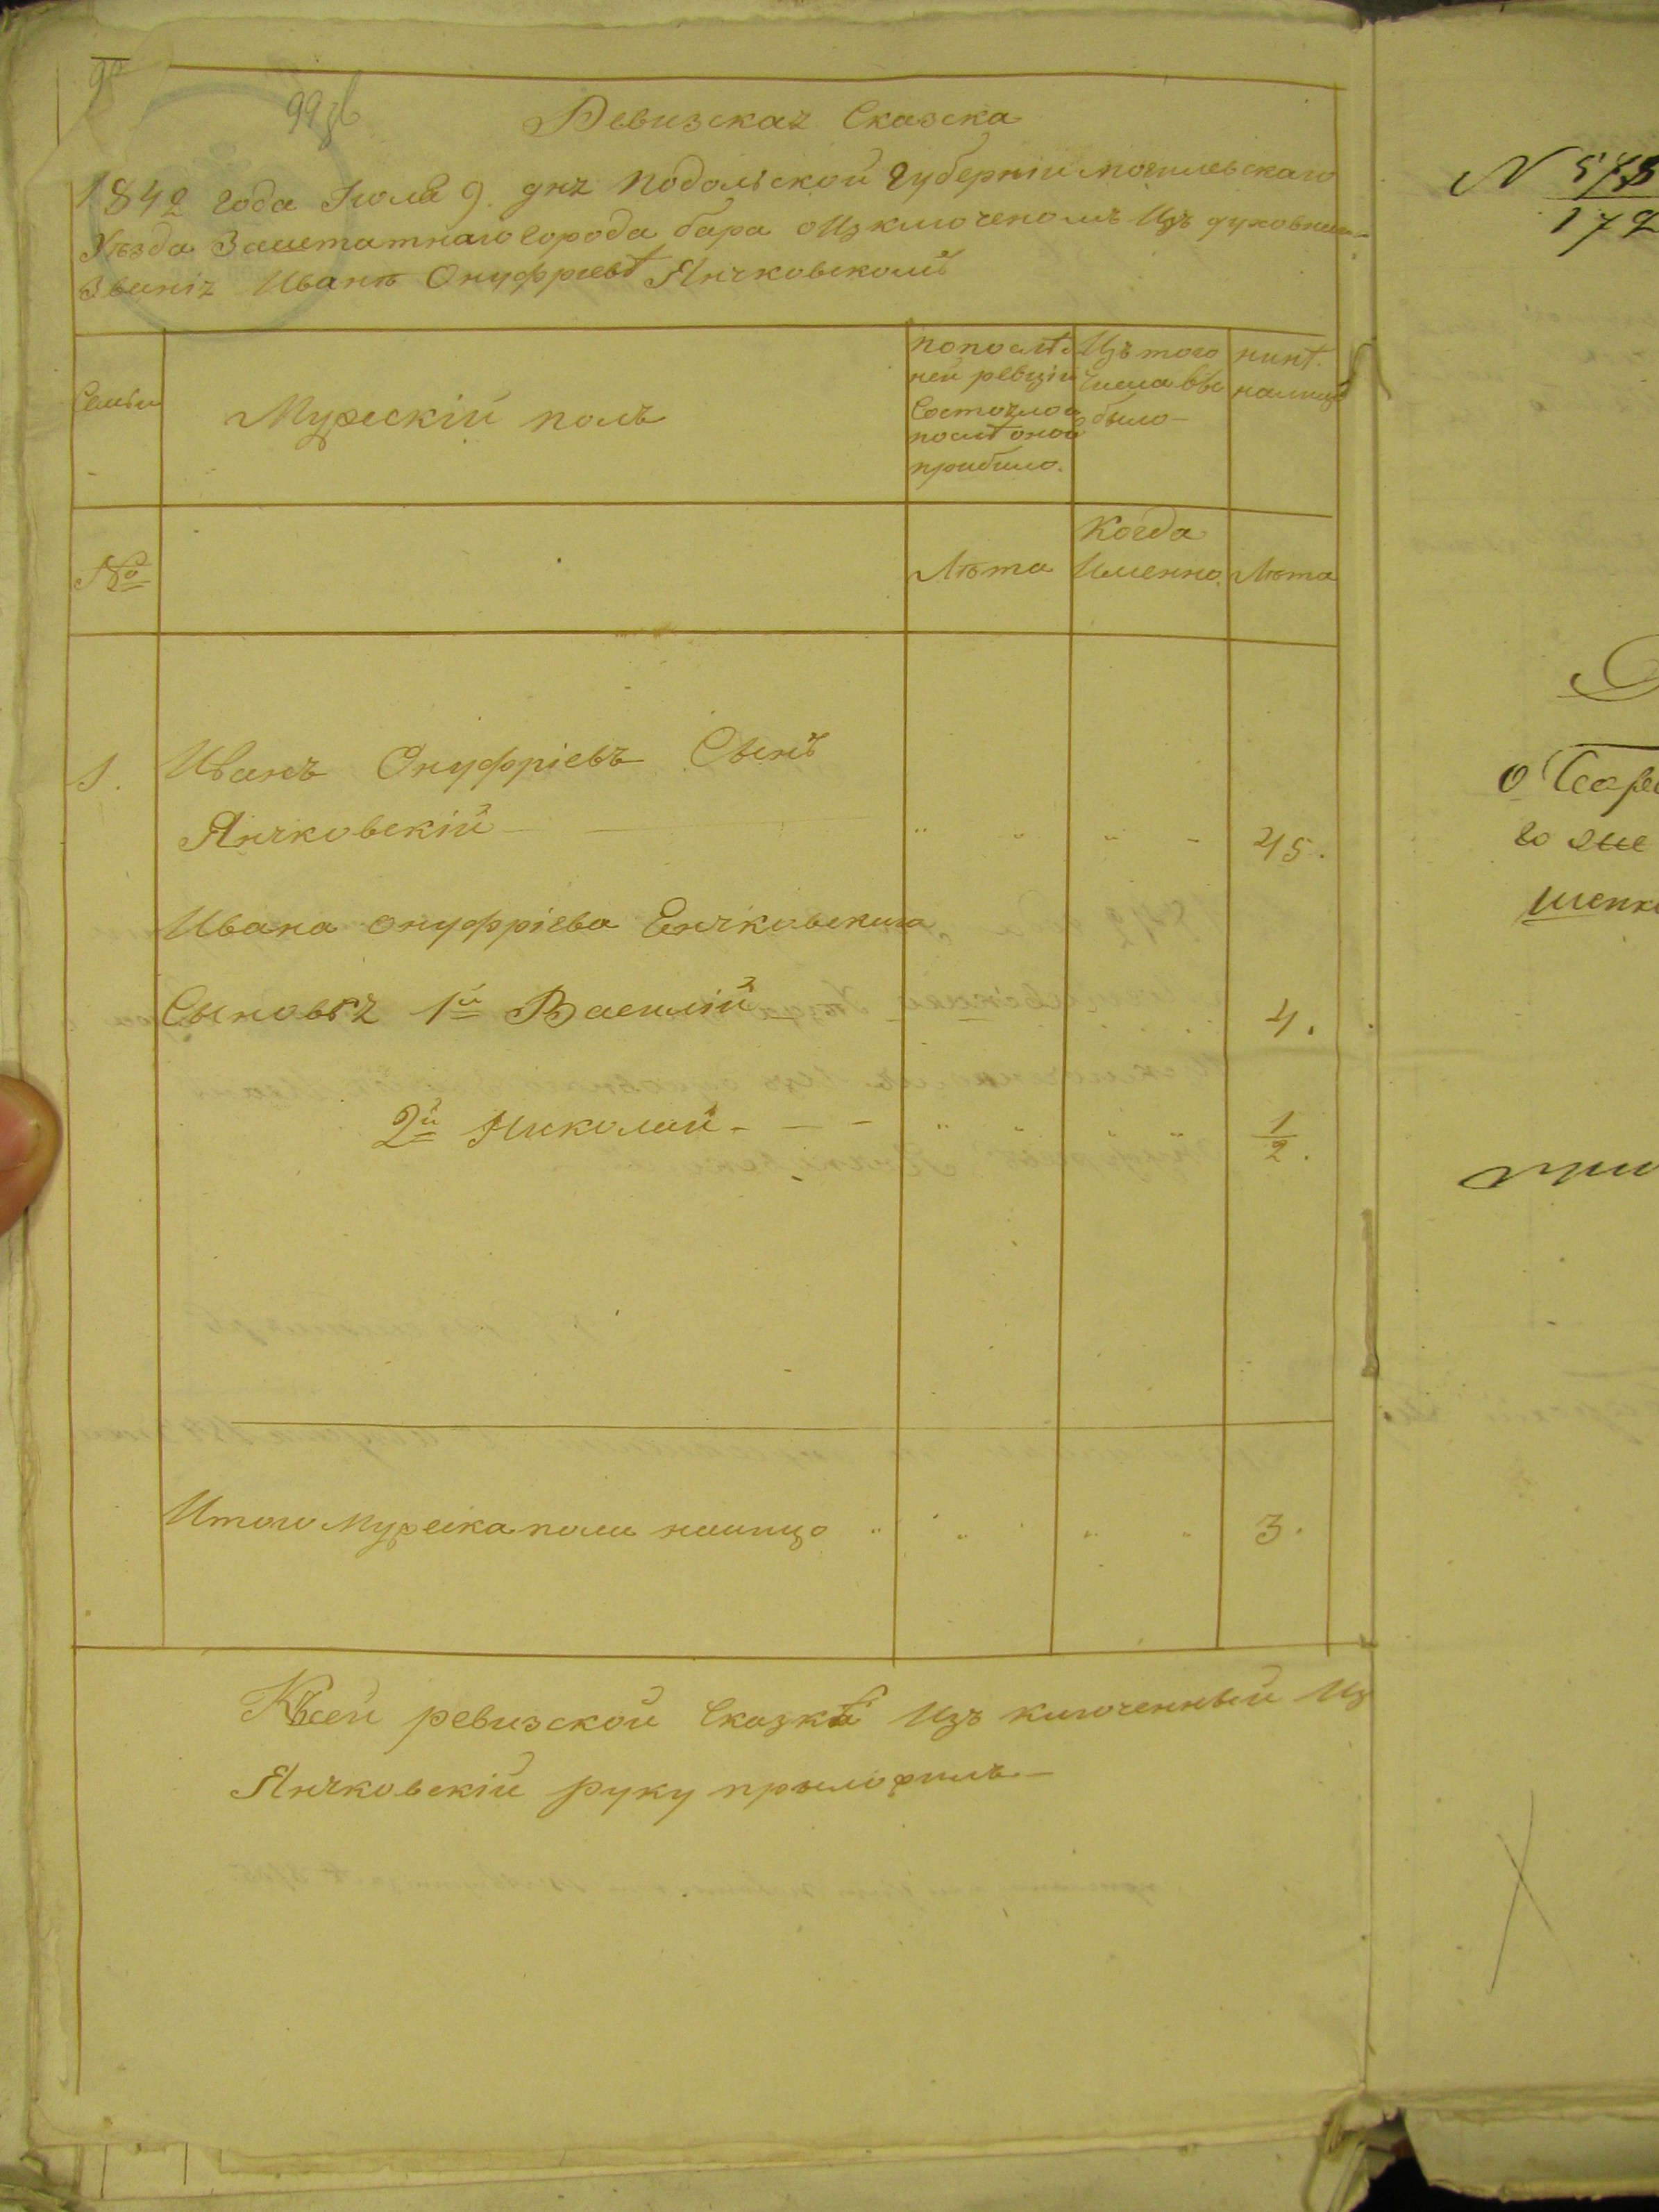 99
Ревизская Сказска
1842 года Іюля 9. дня Подольской Губерніи могилевскаго
Уѣзда Заштатнаго города бара о Изключеномъ Изъ духовнаго
Званія Иванѣ Онуфріевѣ Янчковскомъ
Семьи
Мужескій полъ
по послѣд
ней ревизіи
состояло и
послѣ оной
прибыло.
Изъ того
Числа выбы
было
нинѣ
налицо
№
Лѣта
Когда
Именно
Лѣта
1.
Иванъ Онуфріевъ Сынъ
Янчковскій
45.
Ивана онуфріева Енчковскаго
Сыновья 1й Василій
4.
2й Николай
1/2.
Итого Мужеска пола налицо
3.
Къ сей ревизской Сказкѣ Изъ ключенный Из
Янчковскій руку прыложилъ
N 575
172
о
го
при